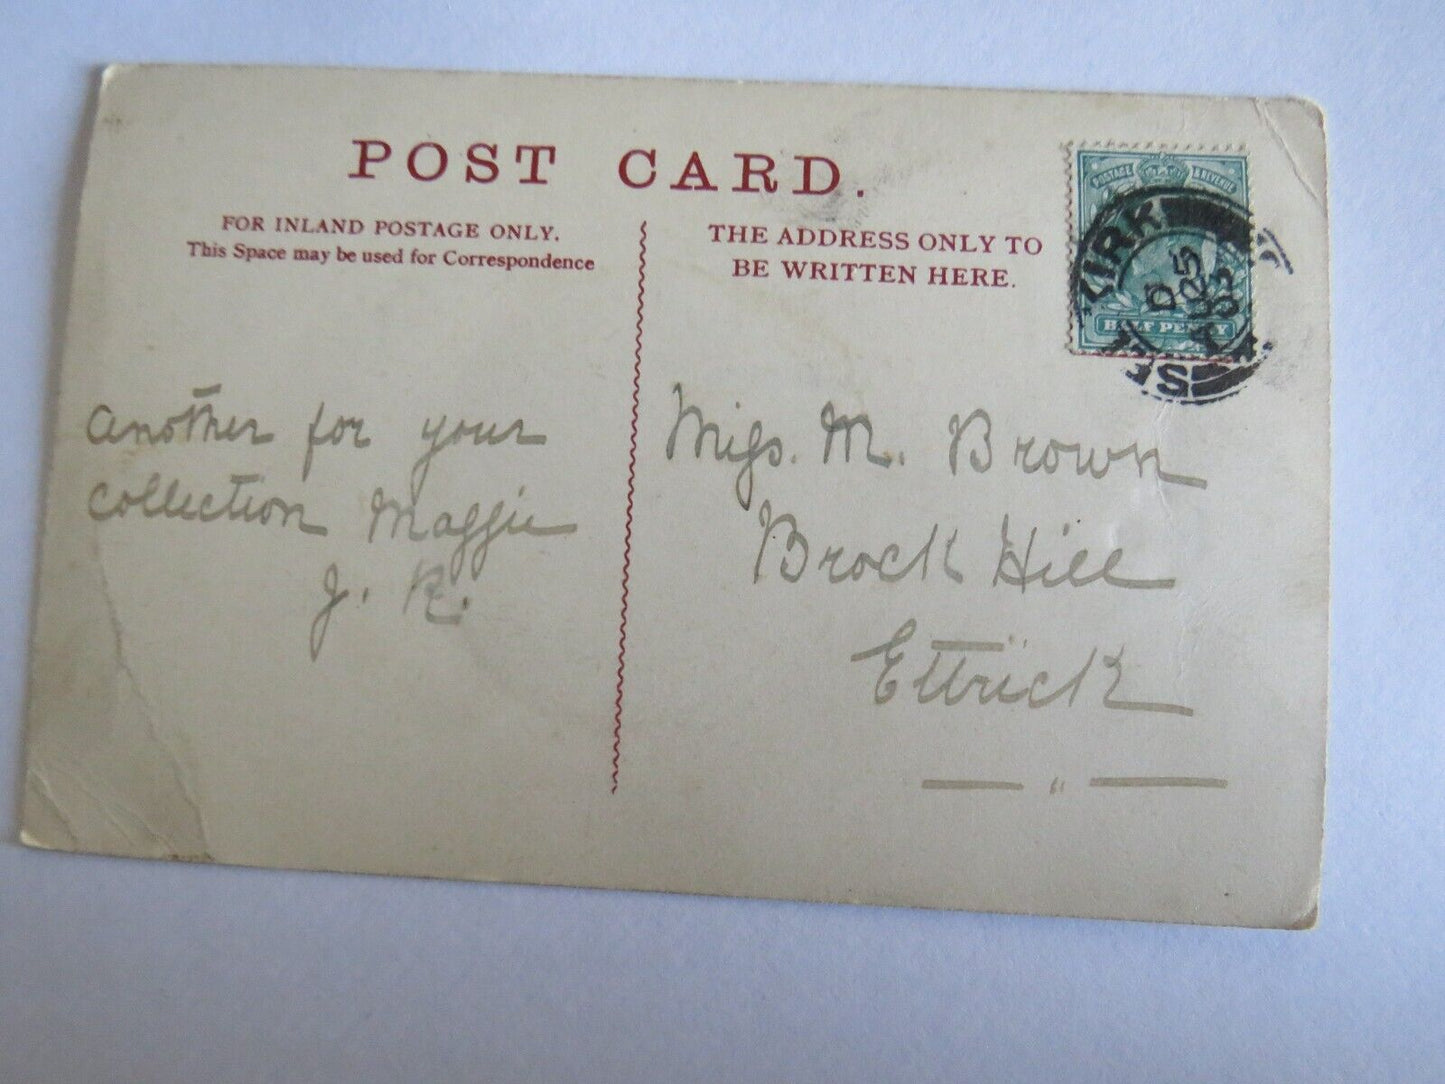 POST CARD.
FOR INLAND POSTAGE ONLY.
This Space may be used for Correspondence
THE ADDRESS ONLY TO
BE WRITTEN HERE.
POSTAGE & REVENUE
HALF PENNY
SELKIRK
another for your
collection Maggie
J. R.
Miss. M. Brown
Brock Hill
Ettrick